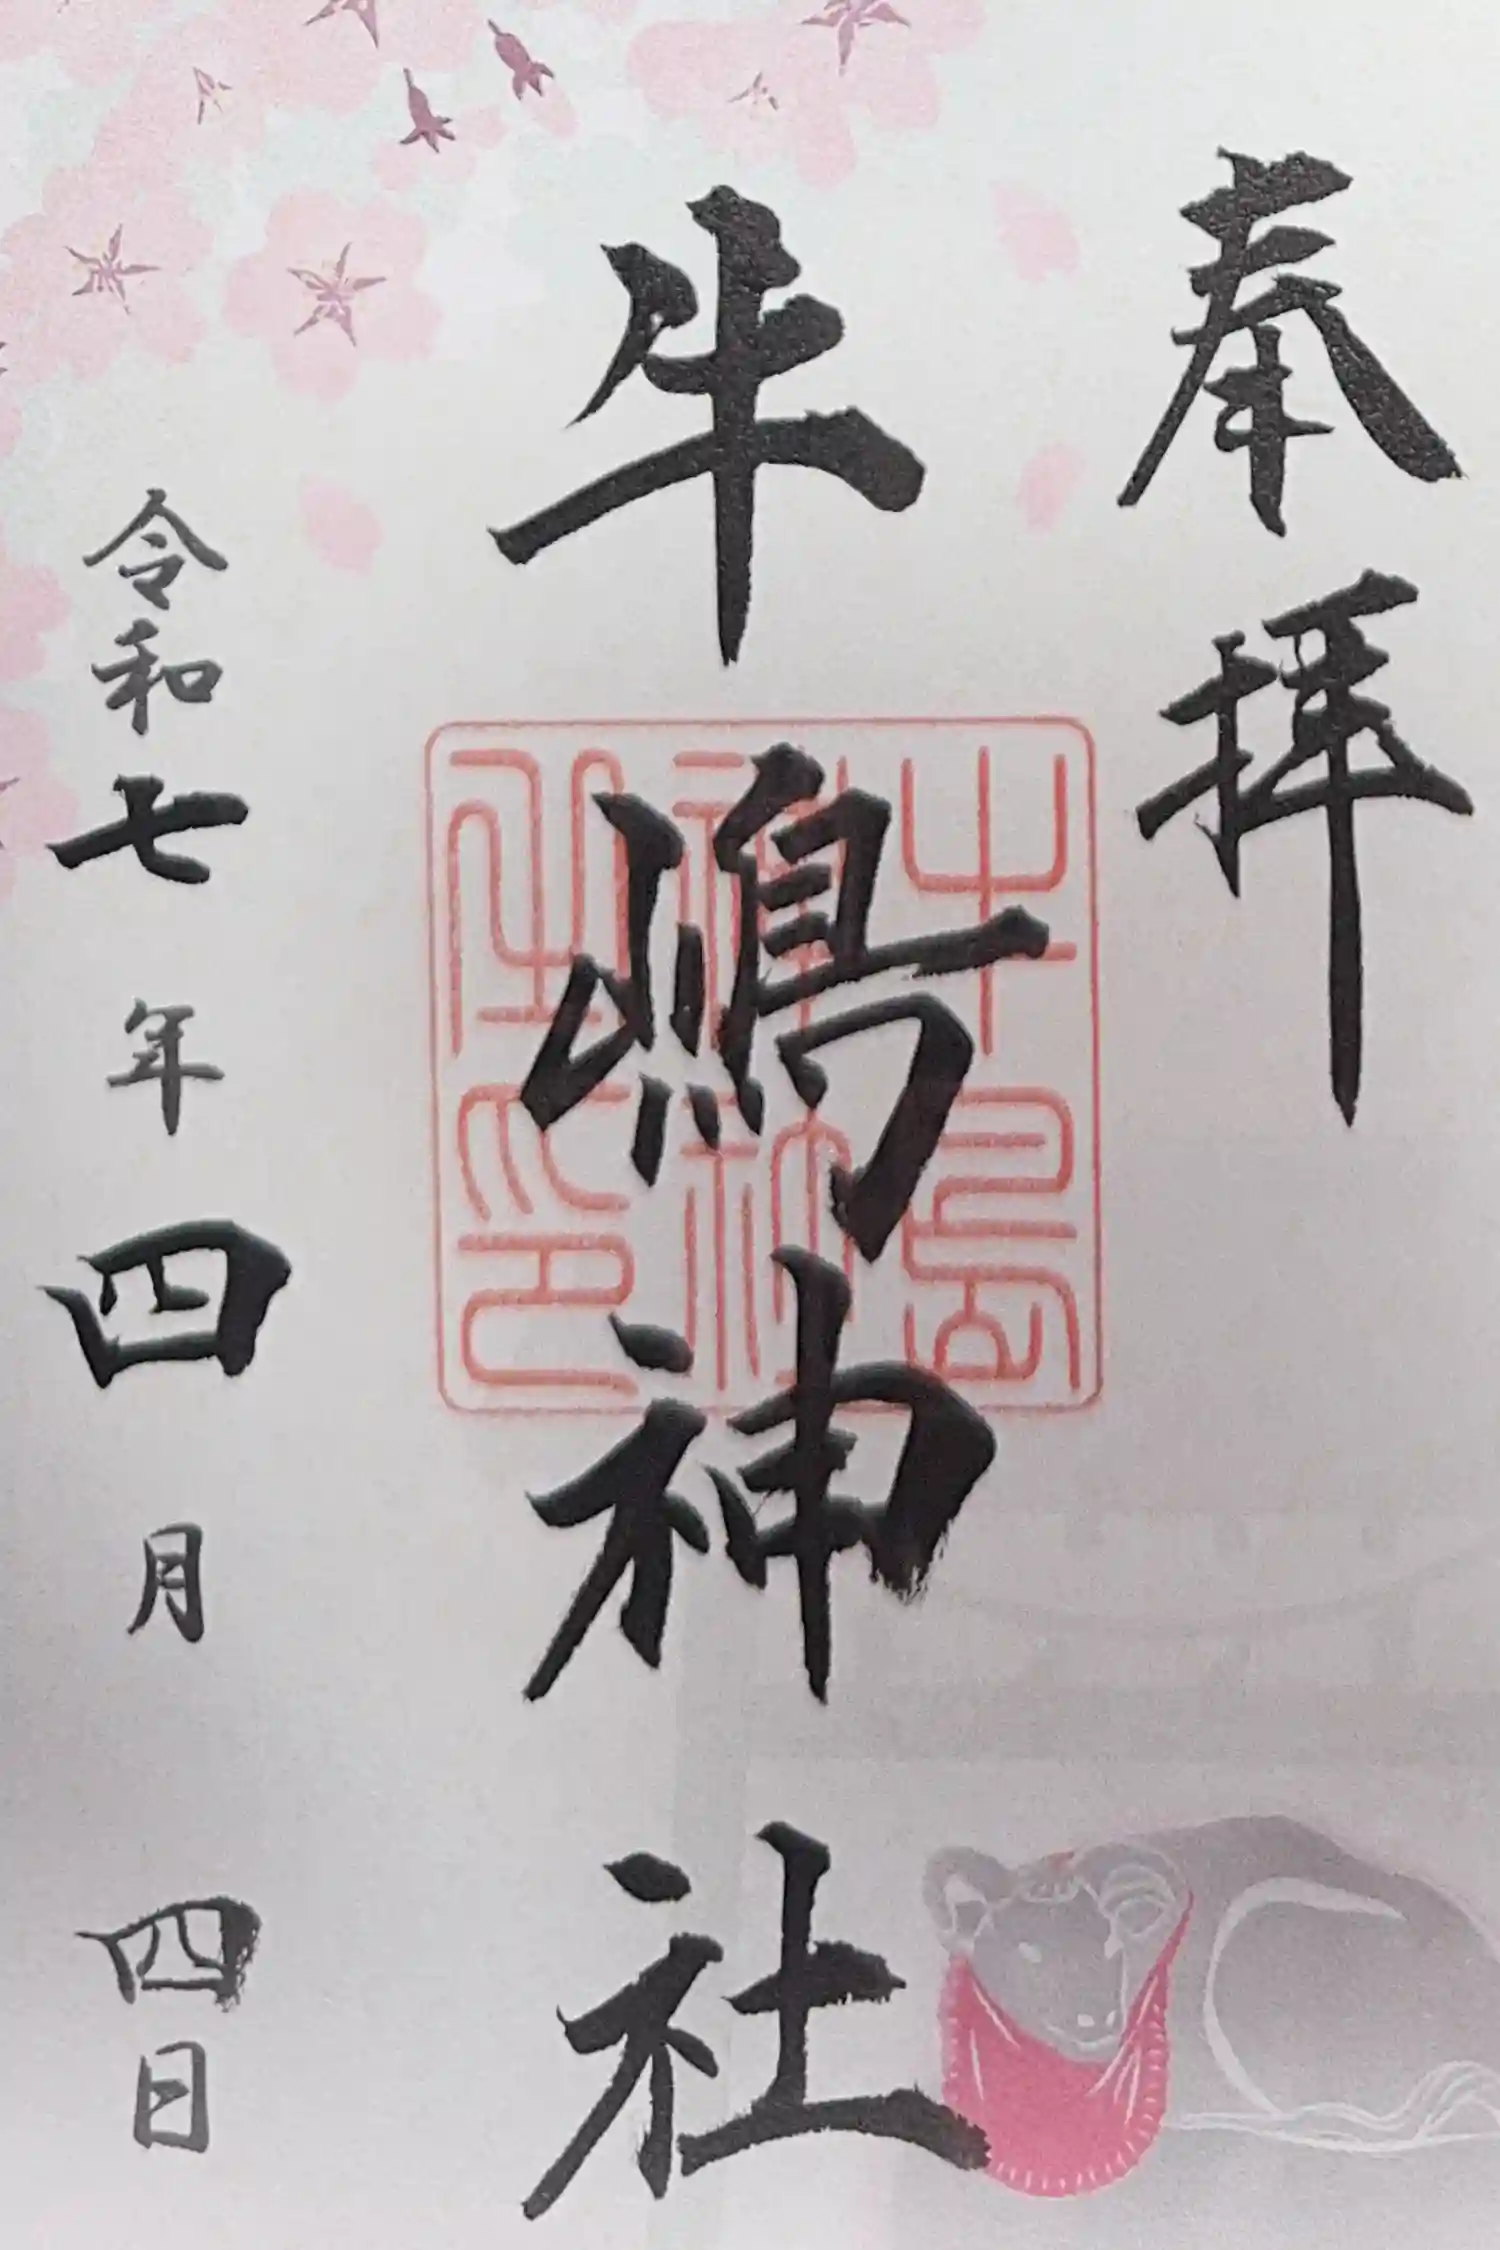 奉拝
牛嶋神社
牛島神社之印
令和七年四月四日